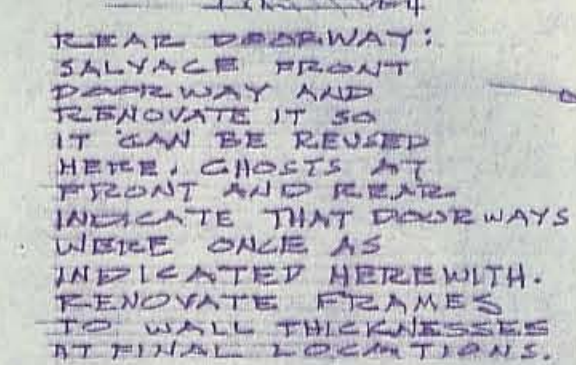 REAR DOORWAY:
SALVAGE FRONT
DOORWAY AND
RENOVATE IT SO
IT CAN BE REUSED
HERE. GHOSTS AT
FRONT AND REAR
INDICATE THAT DOORWAYS
WERE ONCE AS
INDICATED HEREWITH.
RENOVATE FRAMES
TO WALL THICKNESSES
AT FINAL LOCATIONS.